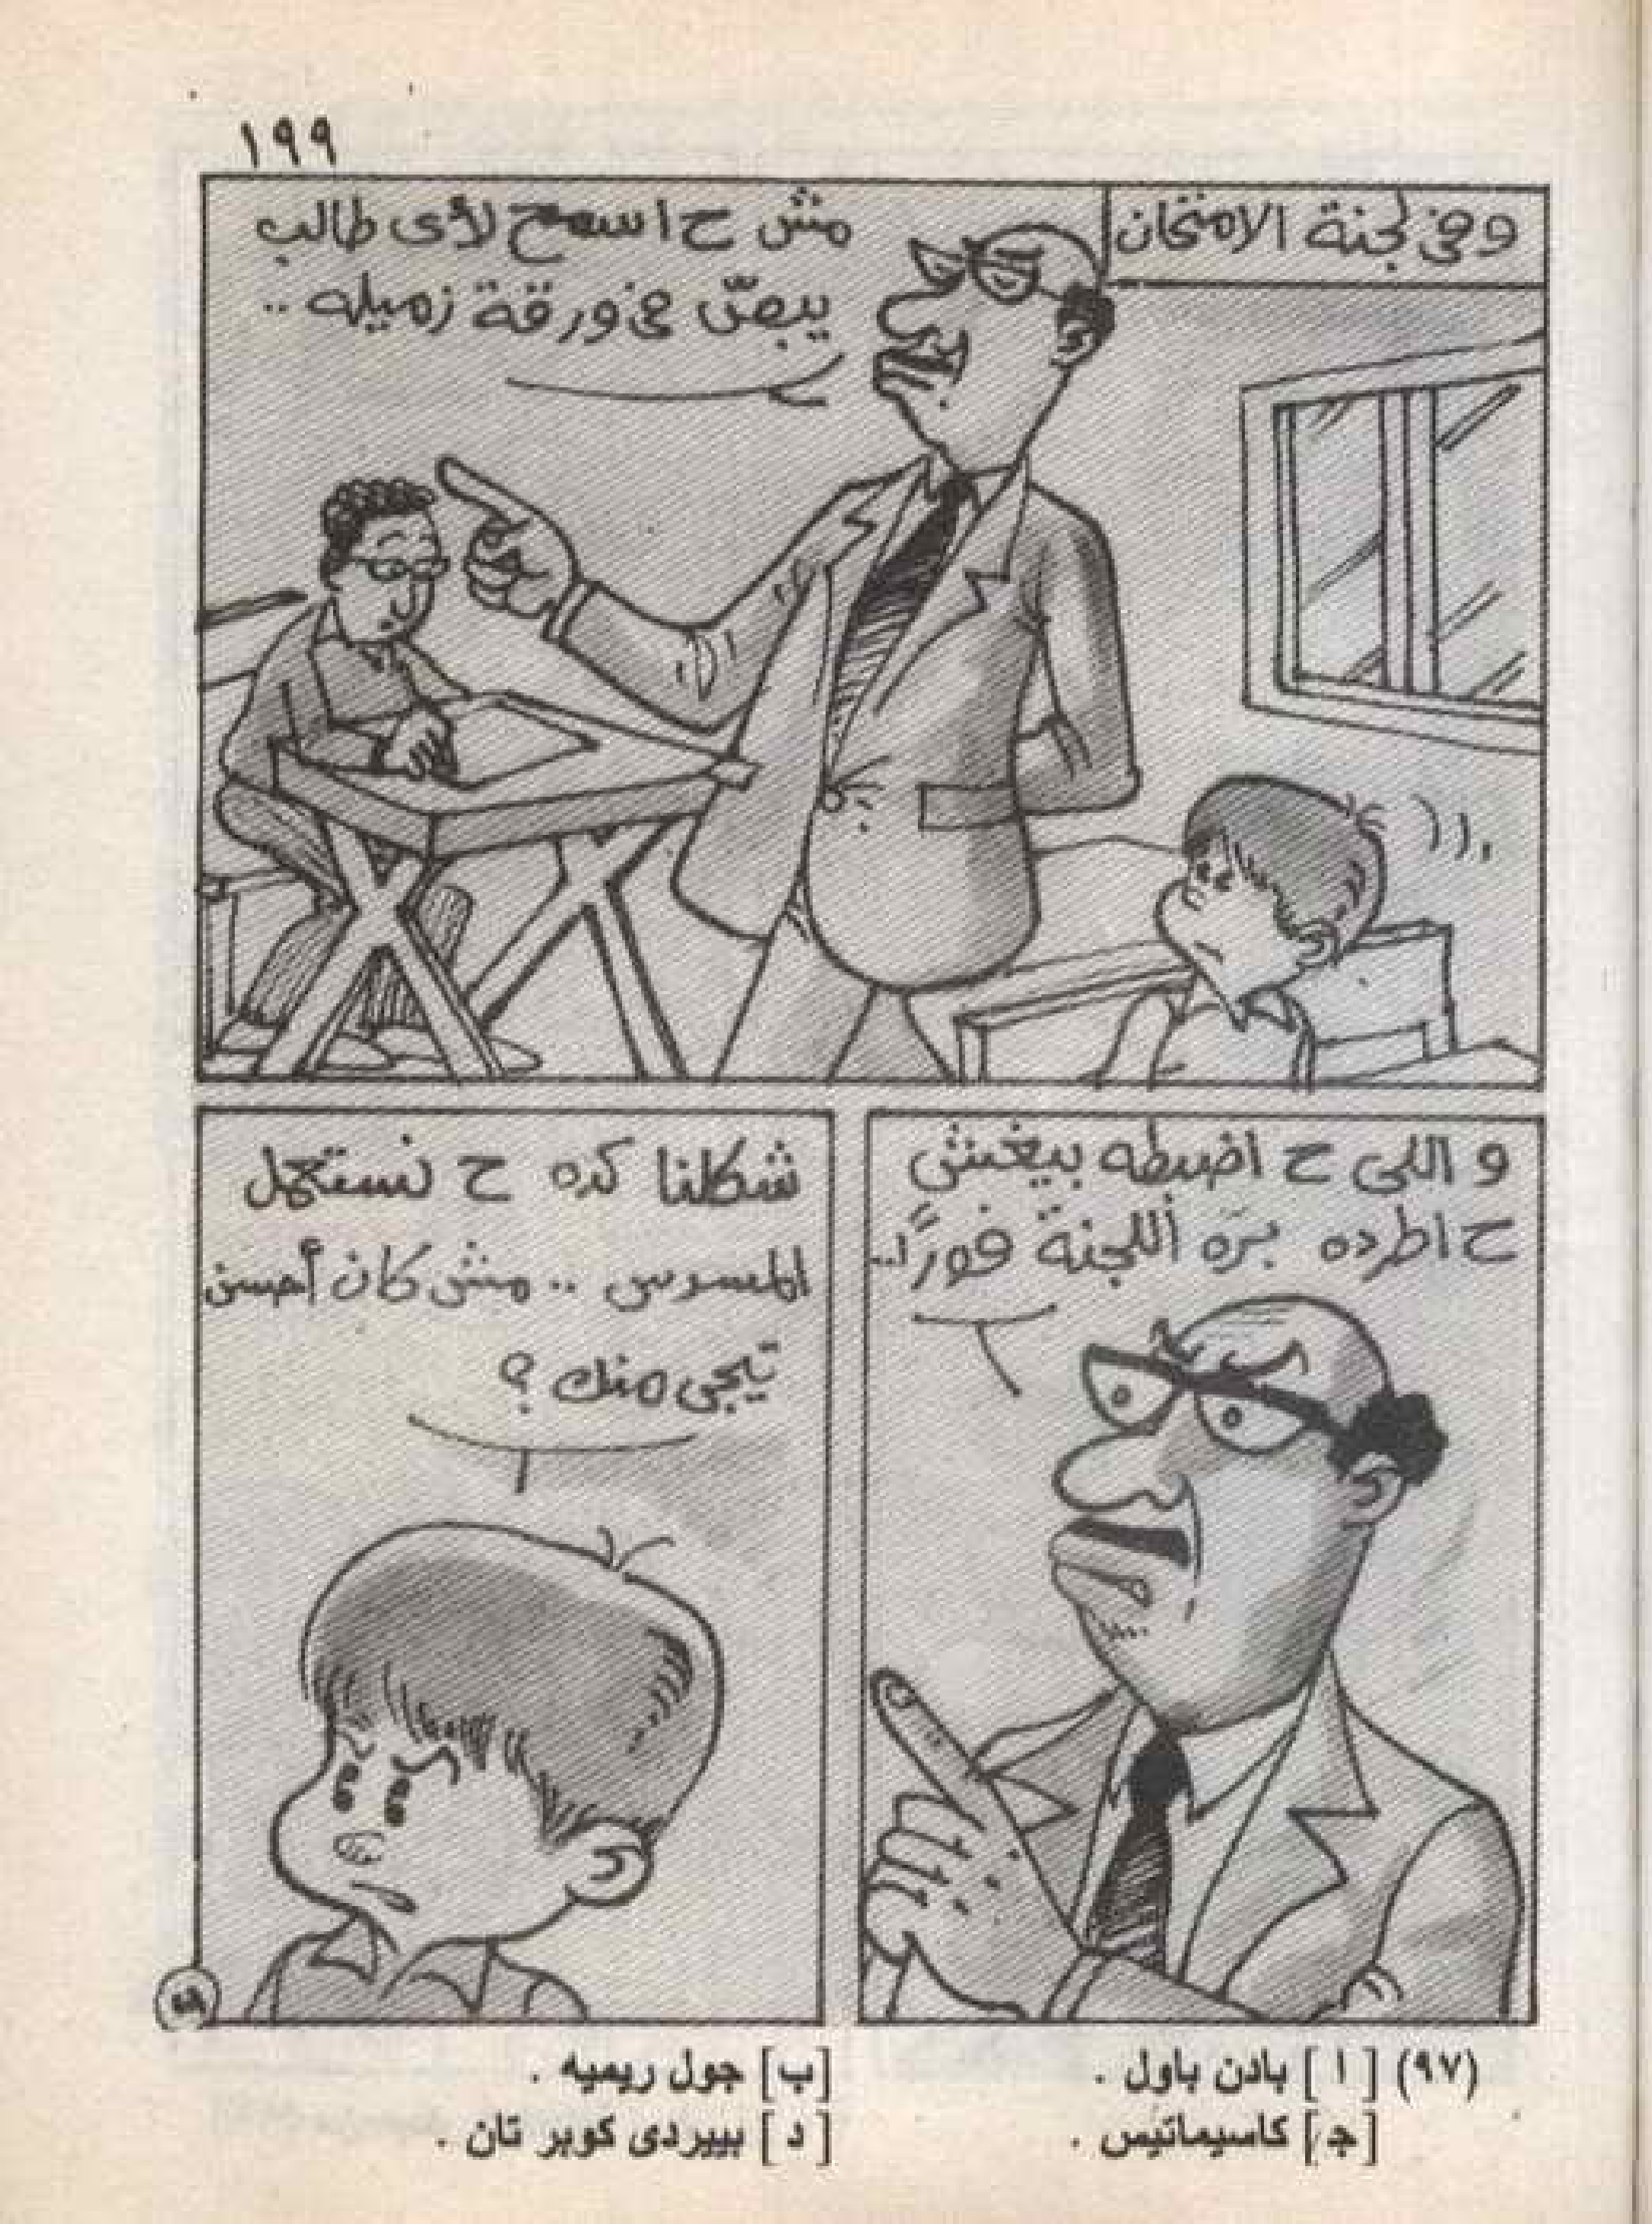 ١٩٩
وفى لجنة الامتحان
مش ح اسمح لأى طالب
يبصّ فى ورقة زميله ..
و اللى ح اضبطه بيغش
ح اطرده بره اللجنة فورًا..
شكلنا كده ح نستعمل
المسدس .. مش كان أحسن
تيجى منك ؟
(٩٧) [ ا ] بادن باول .
[ب] جول ريميه .
[جـ] كاسيماتيس .
[ د ] بييردى كوبر تان .